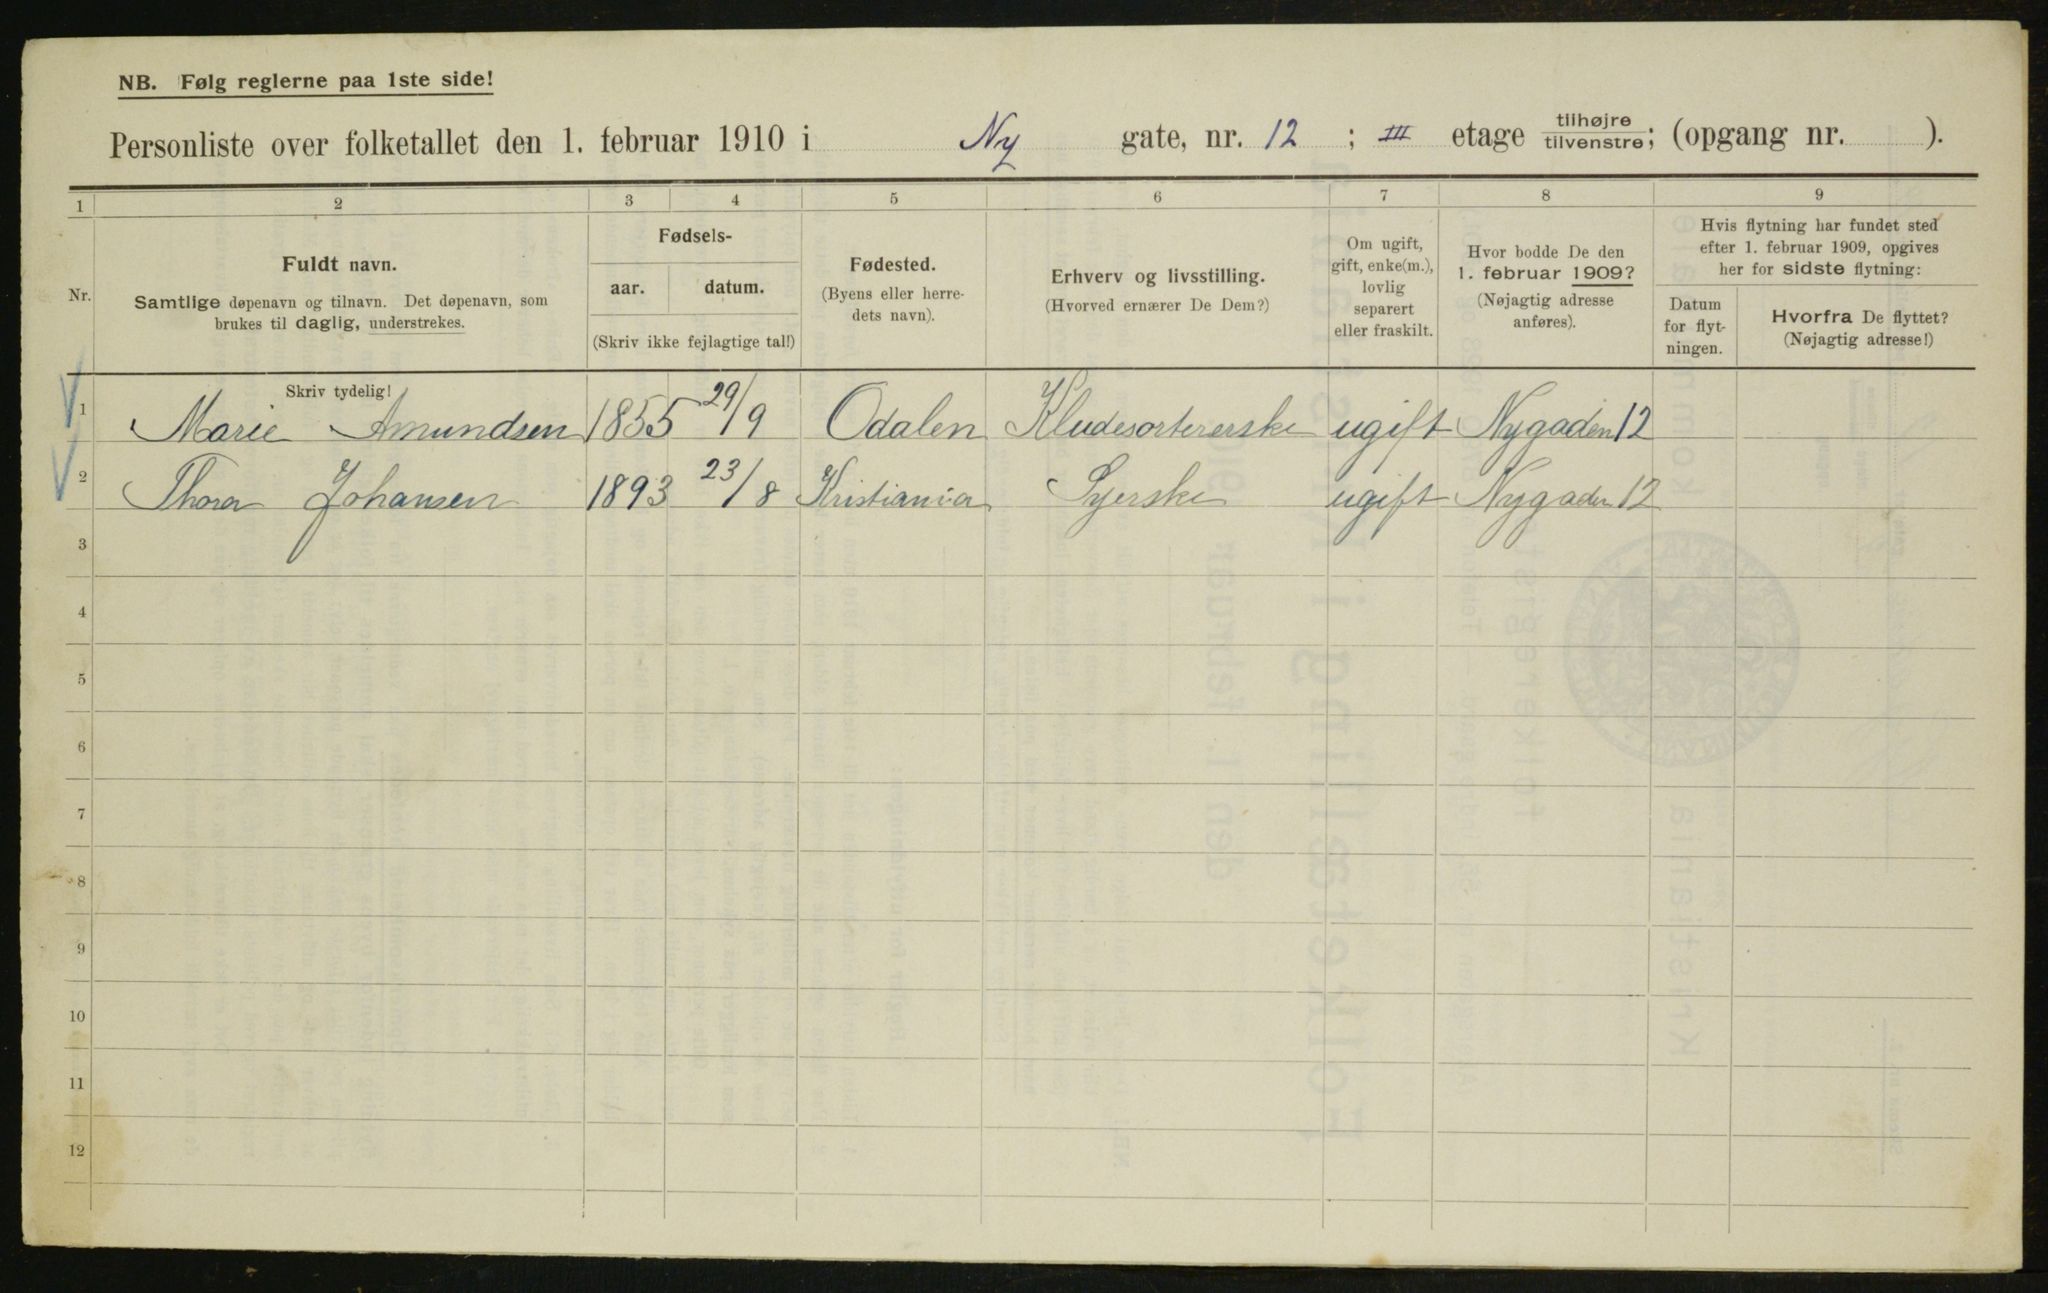 NB. Følg reglerne paa 1ste side!
Personliste over folketallet den 1. februar 1910 i Ny gate, nr. 12 ; III etage tilhøjre/tilvenstre; (opgang nr. ).
1 2 3 4 5 6 7 8 9
Nr.
Fuldt navn.
Samtlige døpenavn og tilnavn. Det døpenavn, som
brukes til daglig, understrekes.
Fødsels-
aar. datum.
(Skriv ikke fejlagtige tal!)
Fødested.
(Byens eller herre-
dets navn).
Erhverv og livsstilling.
(Hvorved ernærer De Dem?)
Om ugift,
gift, enke(m.),
lovlig
separert
eller fraskilt.
Hvor bodde De den
1. februar 1909?
(Nøjagtig adresse
anføres).
Hvis flytning har fundet sted
efter 1. februar 1909, opgives
her for sidste flytning:
Datum
for flyt-
ningen.
Hvorfra De flyttet?
(Nøjagtig adresse!)
Skriv tydelig!
1 Marie Amundsen 1855 29/9 Odalen Kludesortererske ugift Nygaden 12
2 Thora Johansen 1893 23/8 Kristiania Syerske ugift Nygaden 12
3
4
5
6
7
8
9
10
11
12